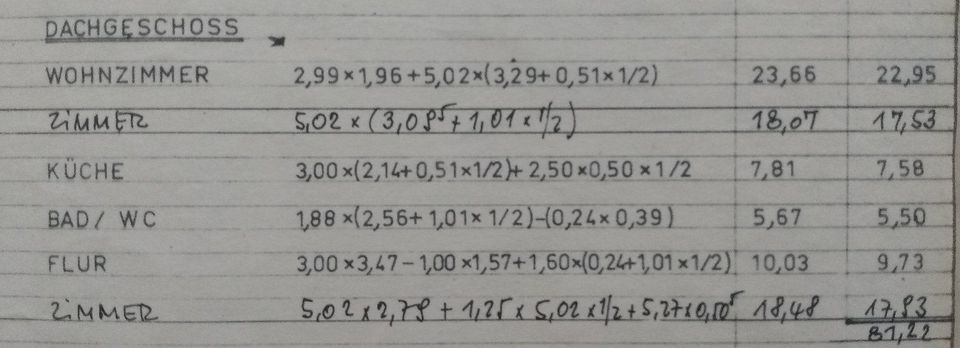 DACHGESCHOSS
WOHNZIMMER 2,99×1,96+5,02×(3,29+0,51×1/2) 23,66 22,95
ZIMMER 5,02 × (3,09⁵+1,01×1/2) 18,07 17,53
KÜCHE 3,00×(2,14+0,51×1/2)+2,50×0,50×1/2 7,81 7,58
BAD/ WC 1,88×(2,56+1,01×1/2)-(0,24×0,39) 5,67 5,50
FLUR 3,00×3,47-1,00×1,57+1,60×(0,24+1,01×1/2) 10,03 9,73
ZIMMER 5,02×2,79+1,25×5,02×1/2+5,27× 18,48 17,93
81,22